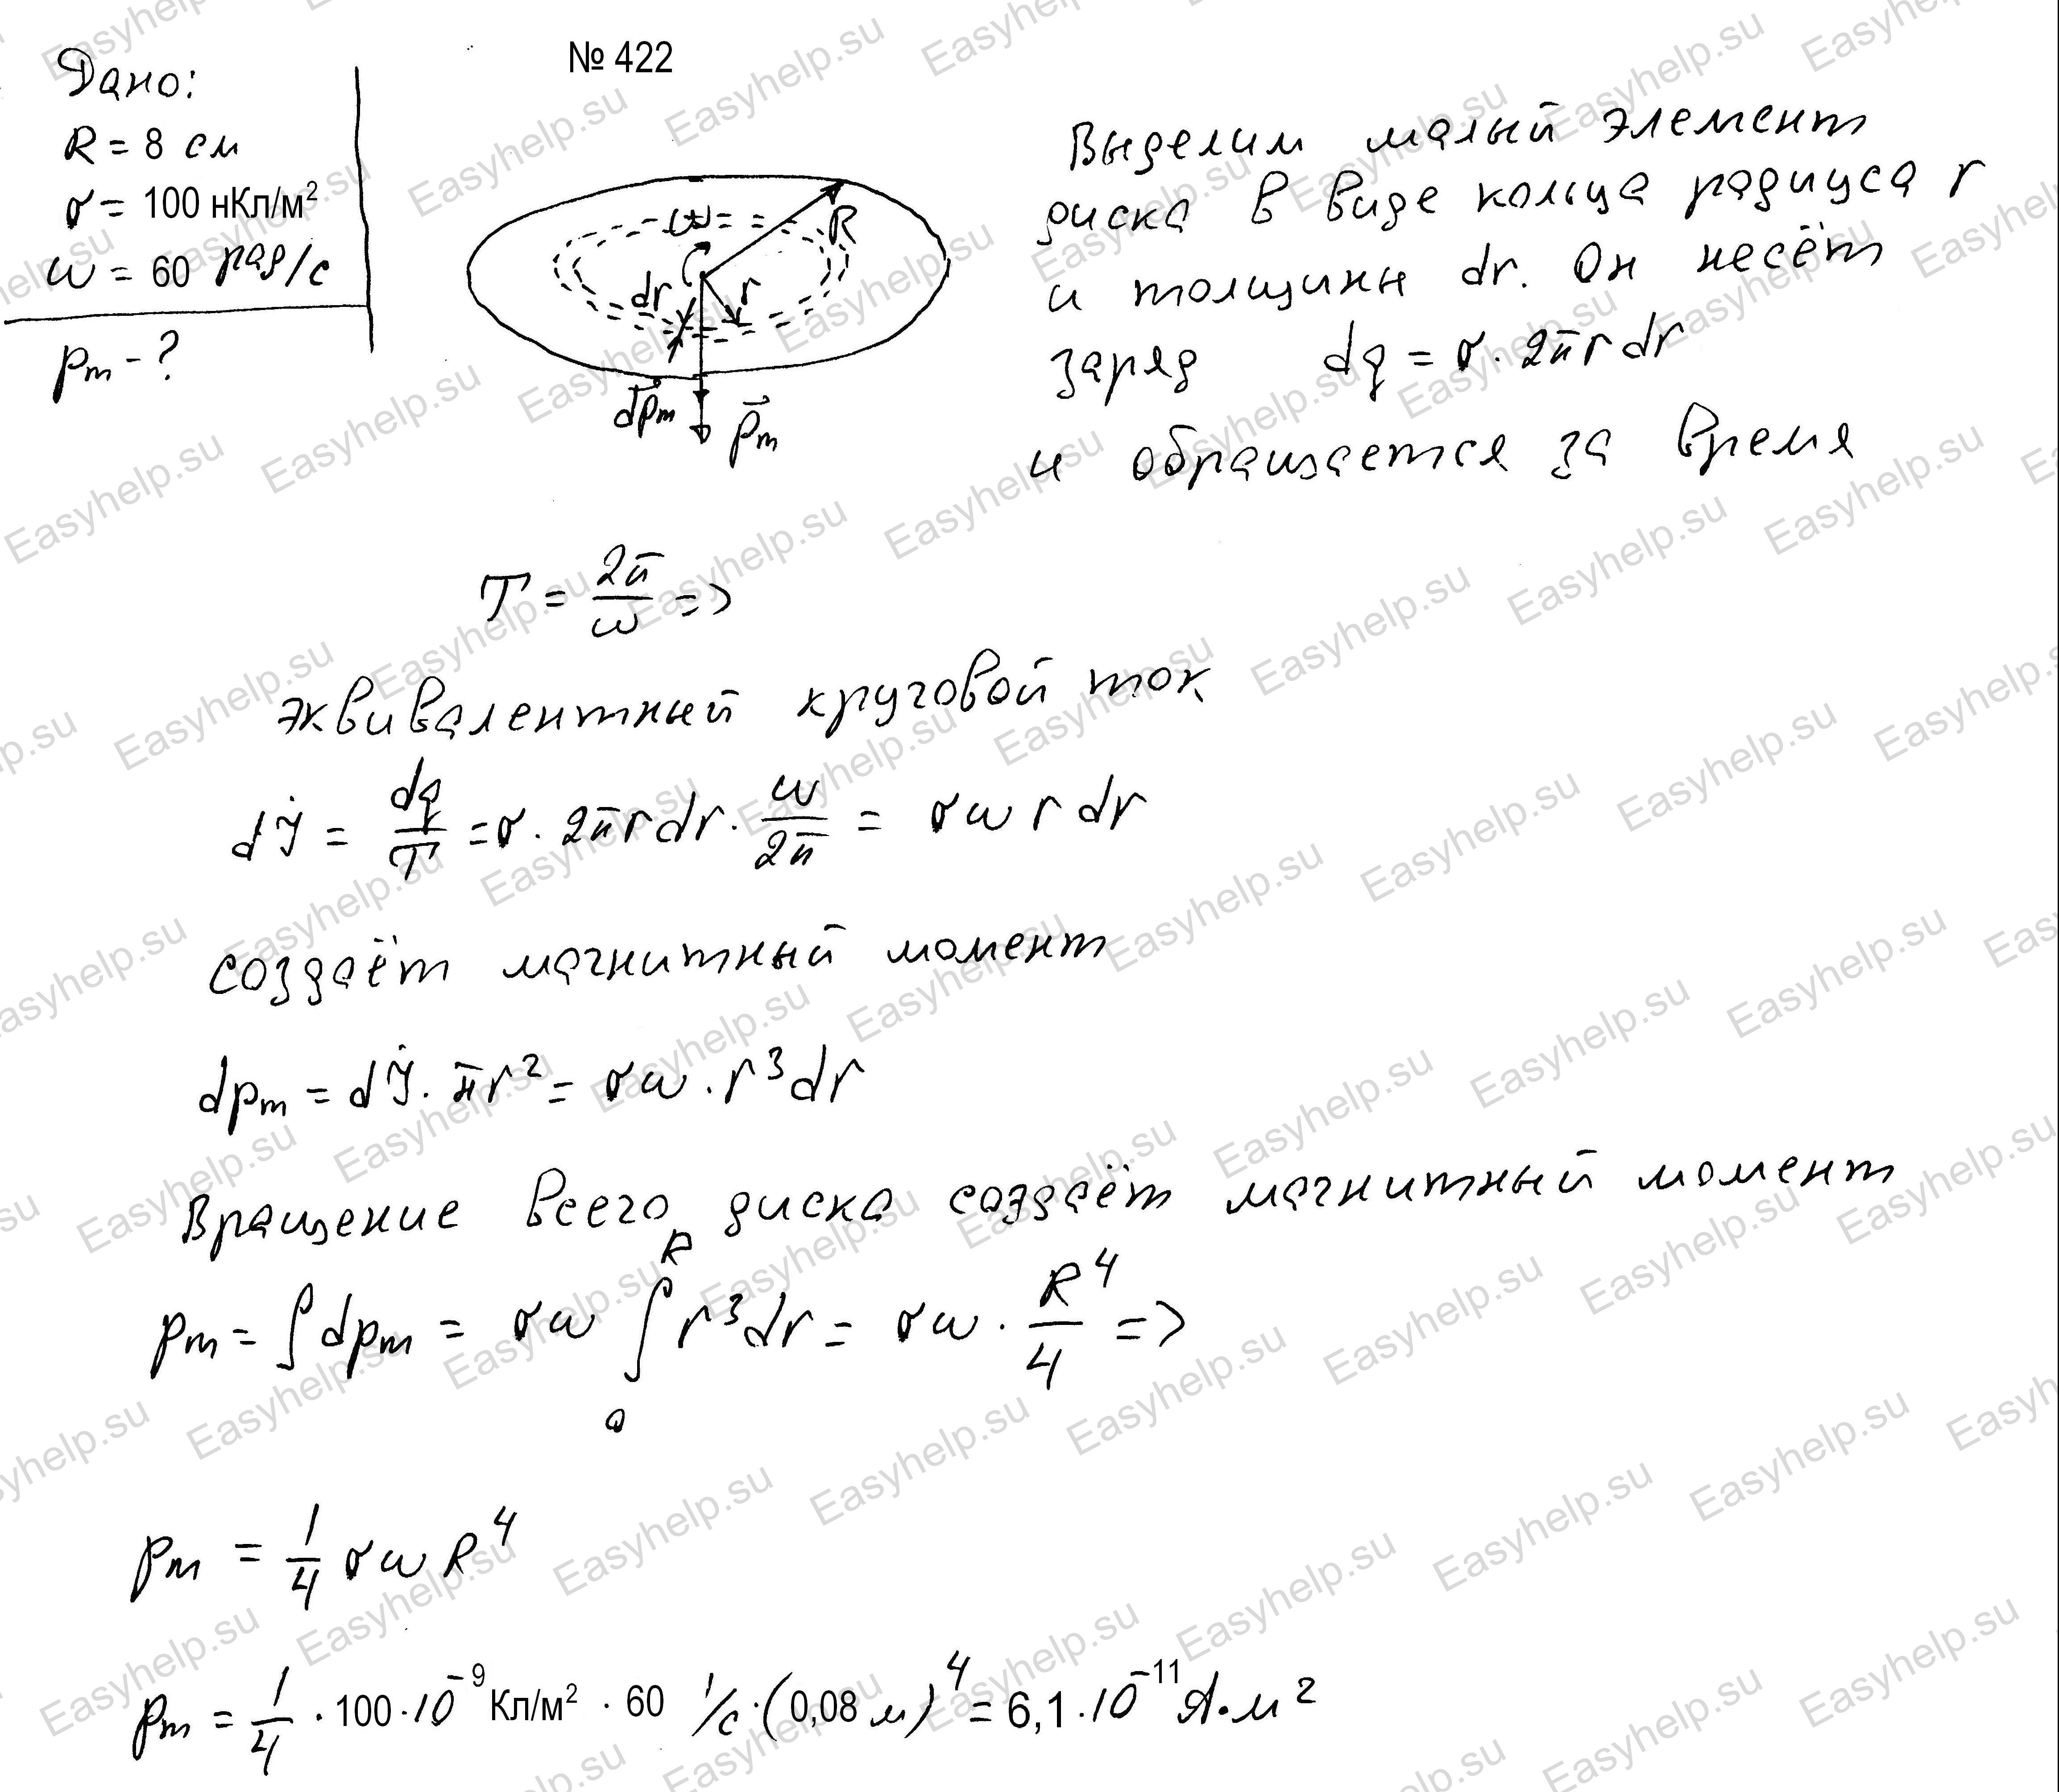 № 422
Дано:
R = 8 см
σ = 100 нКл/м²
ω = 60 рад/с
pm - ?
ω
R
dr
r
dp⃗m
p⃗m
Выделим малый элемент
диска в виде кольца радиуса r
и толщины dr. Он несёт
заряд dq = σ · 2πr dr
и обращается за время
T = 2π/ω =>
эквивалентный круговой ток
dJ = dq/T = σ · 2πr dr · ω/2π = σω r dr
создаёт магнитный момент
dpm = dJ · πr² = σω · r³dr
Вращение всего диска создаёт магнитный момент
pm = ∫dpm = σω ∫₀ᴿ r³dr = σω · R⁴/4 =>
pm = 1/4 σω R⁴
pm = 1/4 · 100 · 10⁻⁹ Кл/м² · 60 1/с · (0,08 м)⁴ = 6,1 · 10⁻¹¹ А·м²
Easyhelp.su